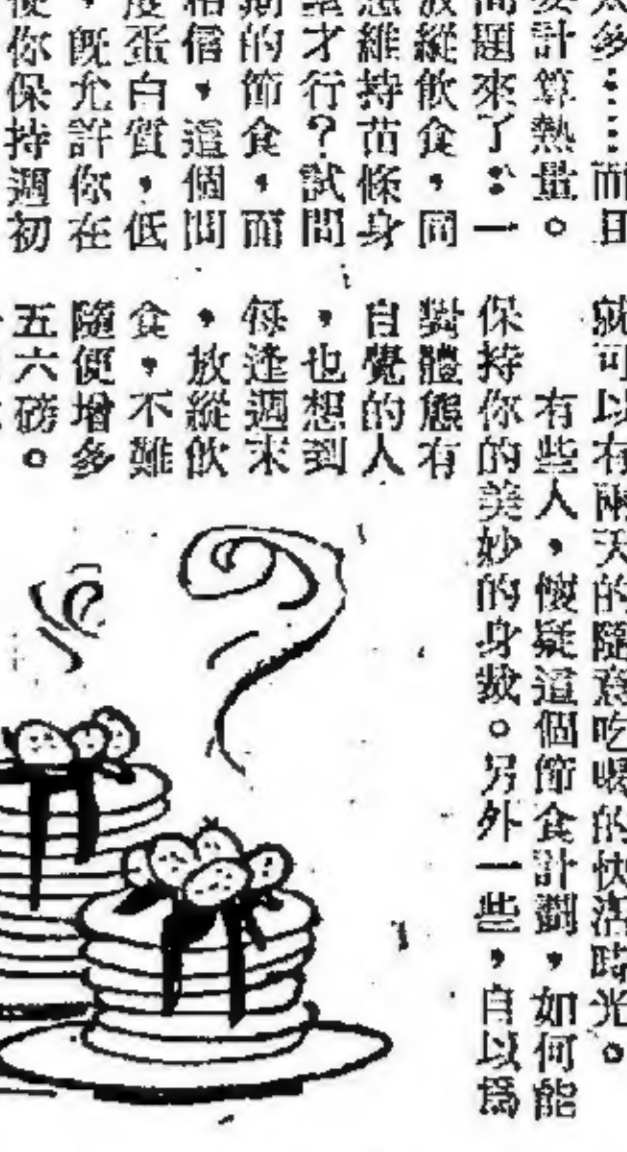 多……而且
計算熱量。
問題來了：一
放縱飲食，同
維持苗條身
才行？試問
期的節食，而
相信，這個問
度蛋白質，低
，既允許你在
你保持週初
就可以有兩天的隨意吃喝的快活時光。
有些人，懷疑這個節食計劃，如何能
保持你的美妙的身裁。另外一些，自以爲
對體態有
自覺的人
，也想到
每逢週末
，放縱飲
食，不難
隨便增多
五六磅。